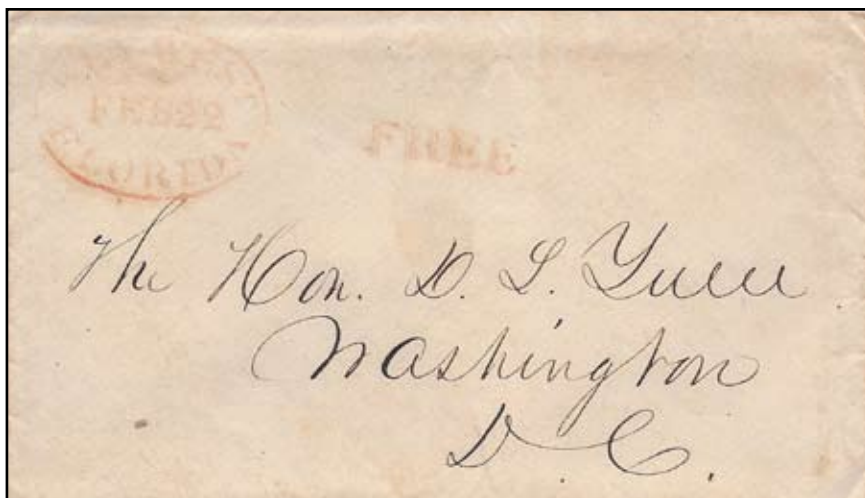 FEB 22
FLORIDA
FREE
The Hon. D. L. Yulee
Washington
D. C.